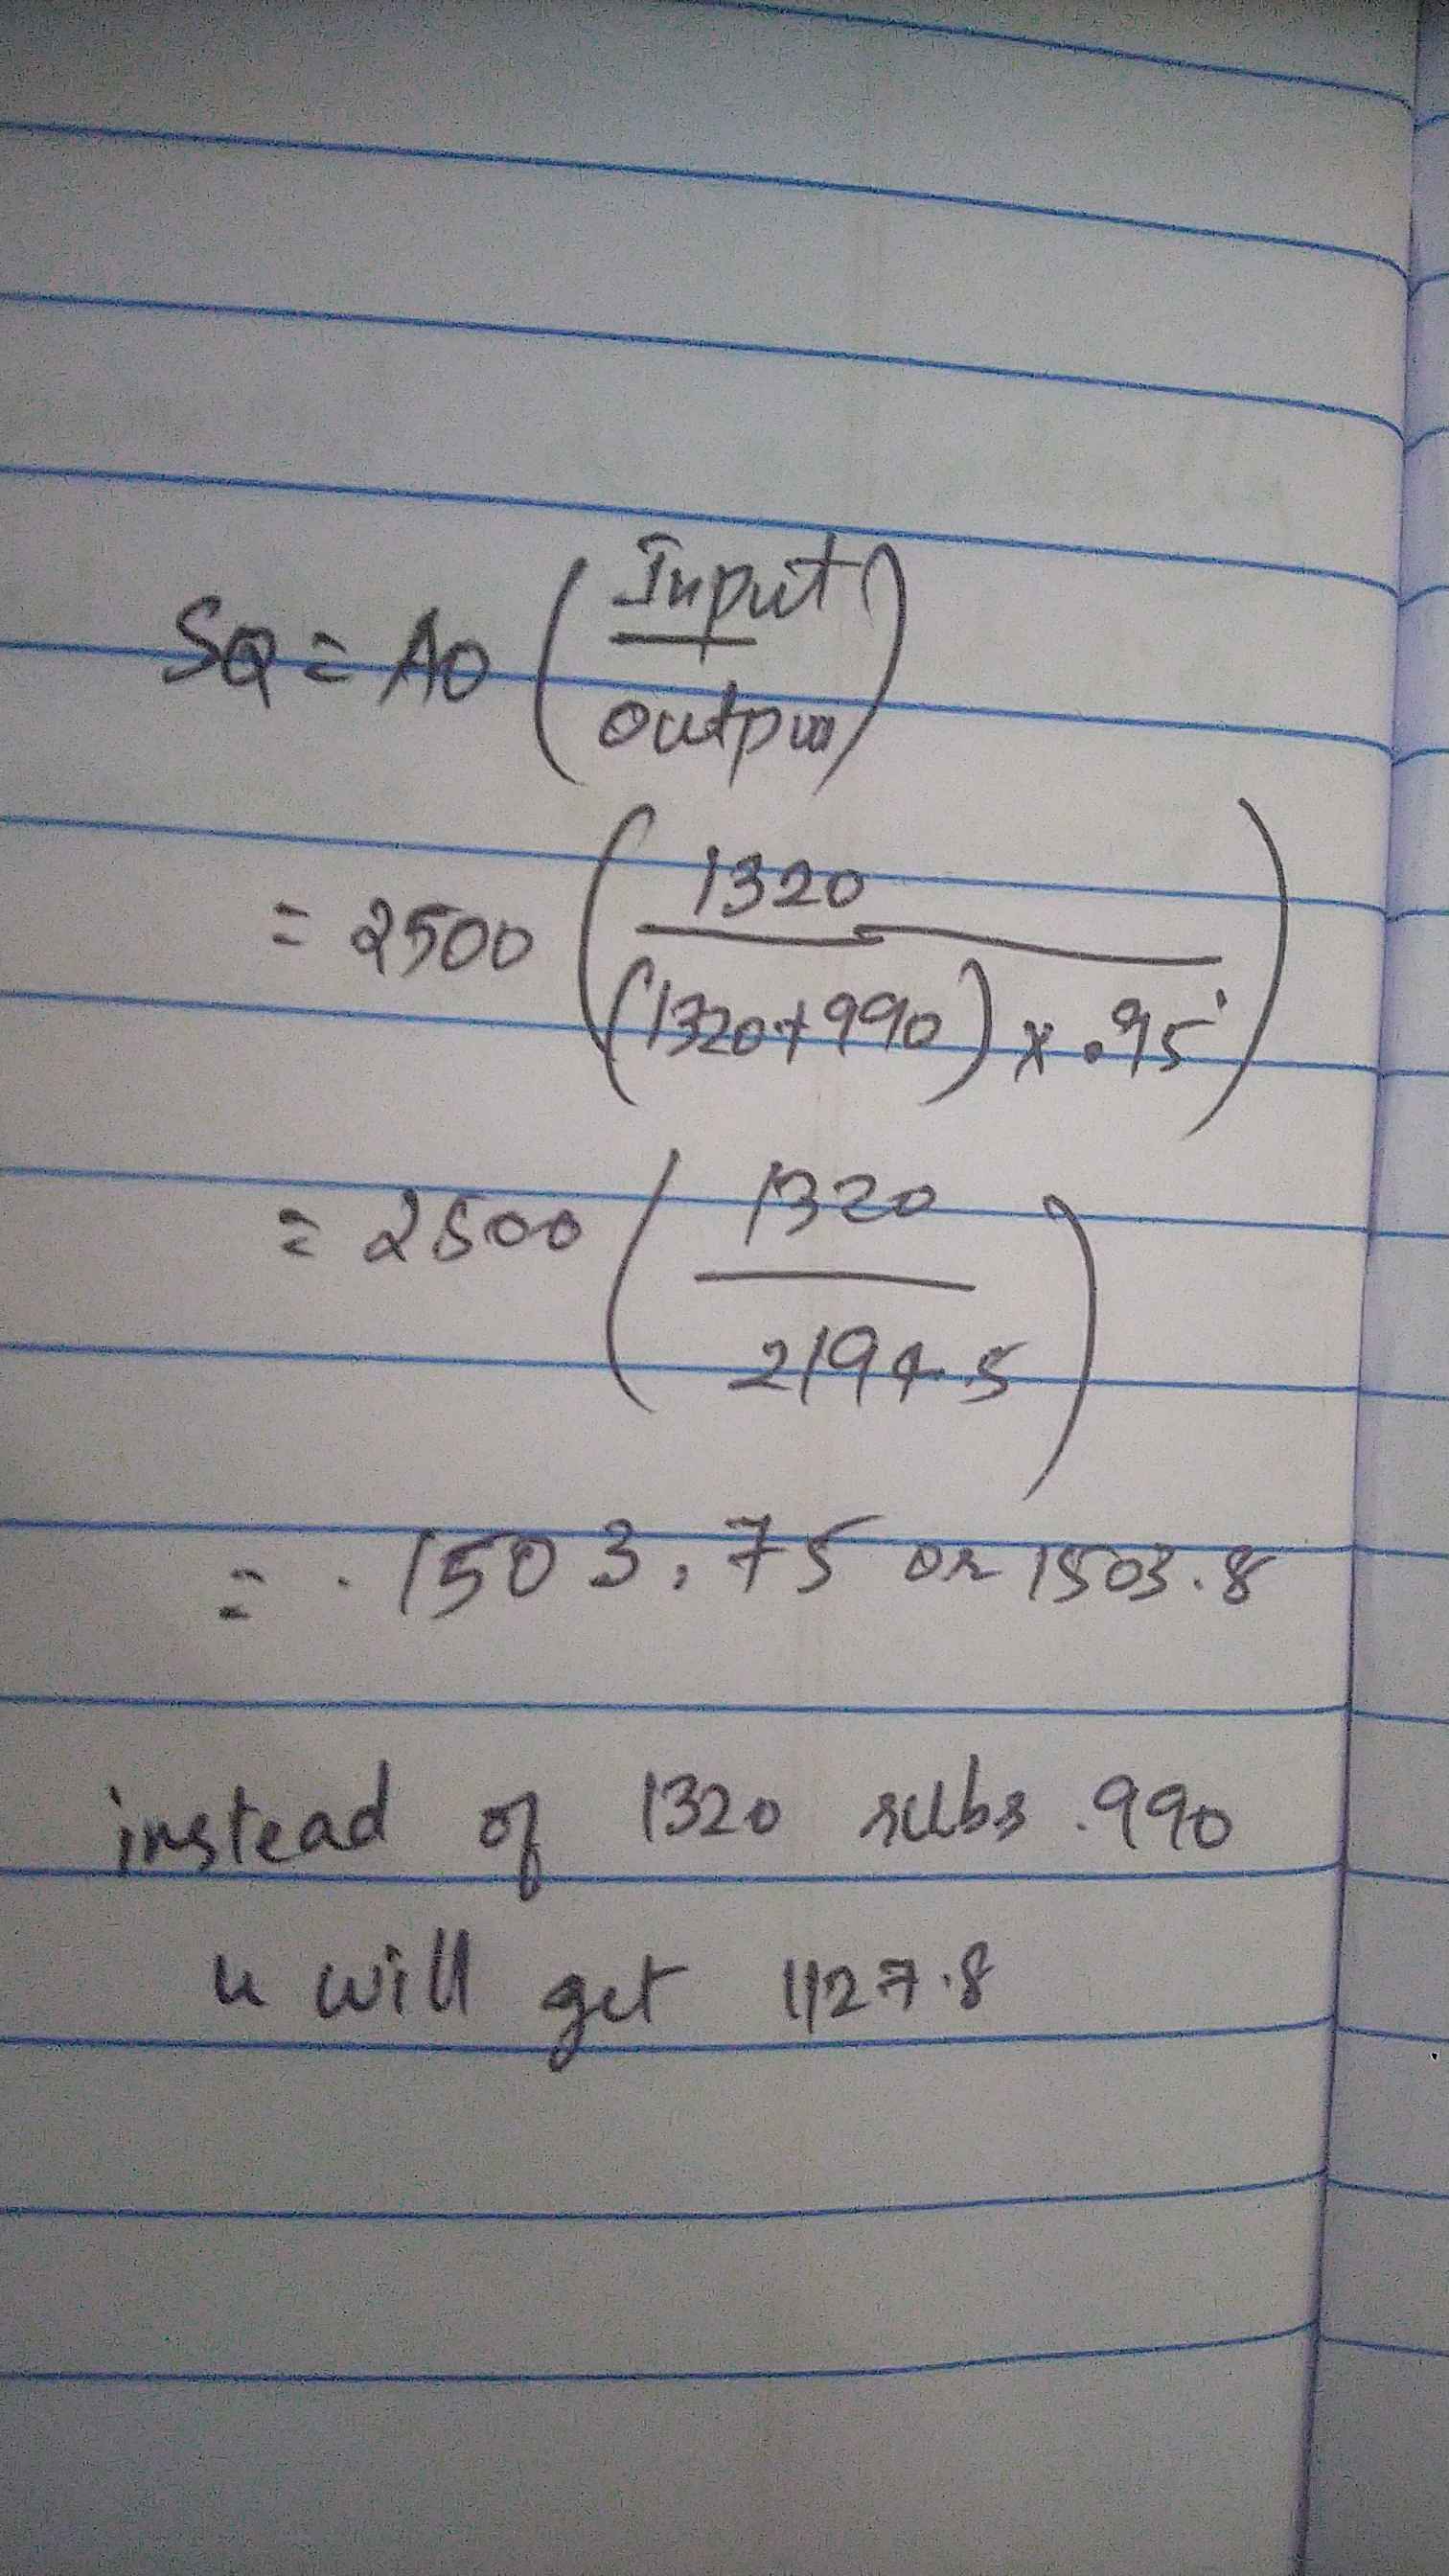 SQ = AO (Input / output)
= 2500 (1320 / (1320+990) x .95)
= 2500 (1320 / 2194.5)
= 1503.75 or 1503.8
instead of 1320 subs 990
u will get 1127.8